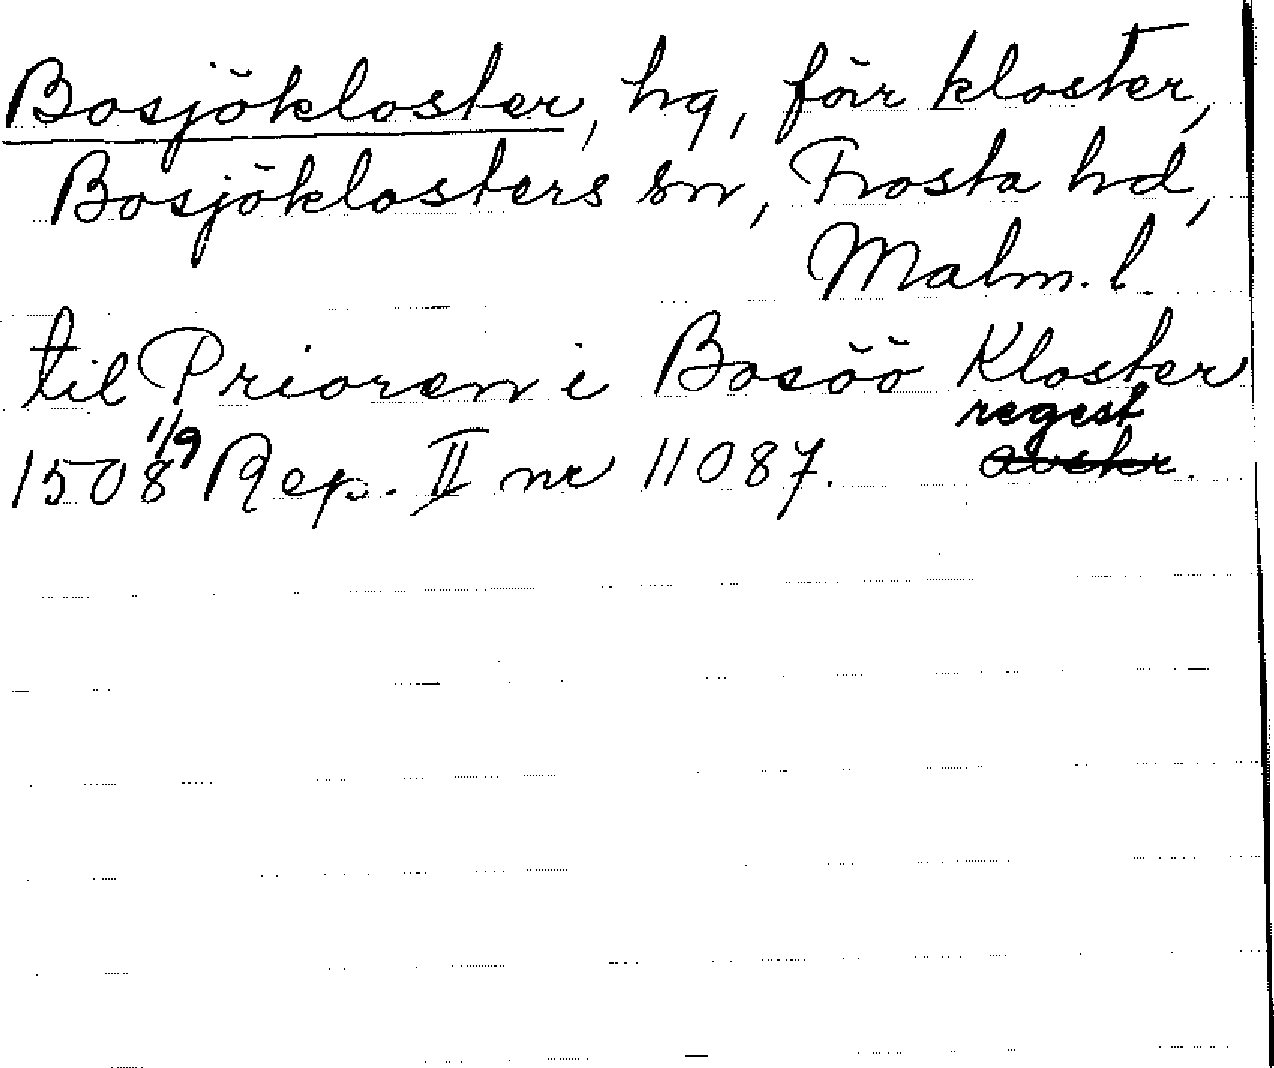 Bosjökloster, hg, förr kloster,
Bosjöklosters sn, Frosta hd,
Malm. l.
til Prioren i Bosöö Kloster
1508 1/9 Rep. II nr 11087. regest
avskr.